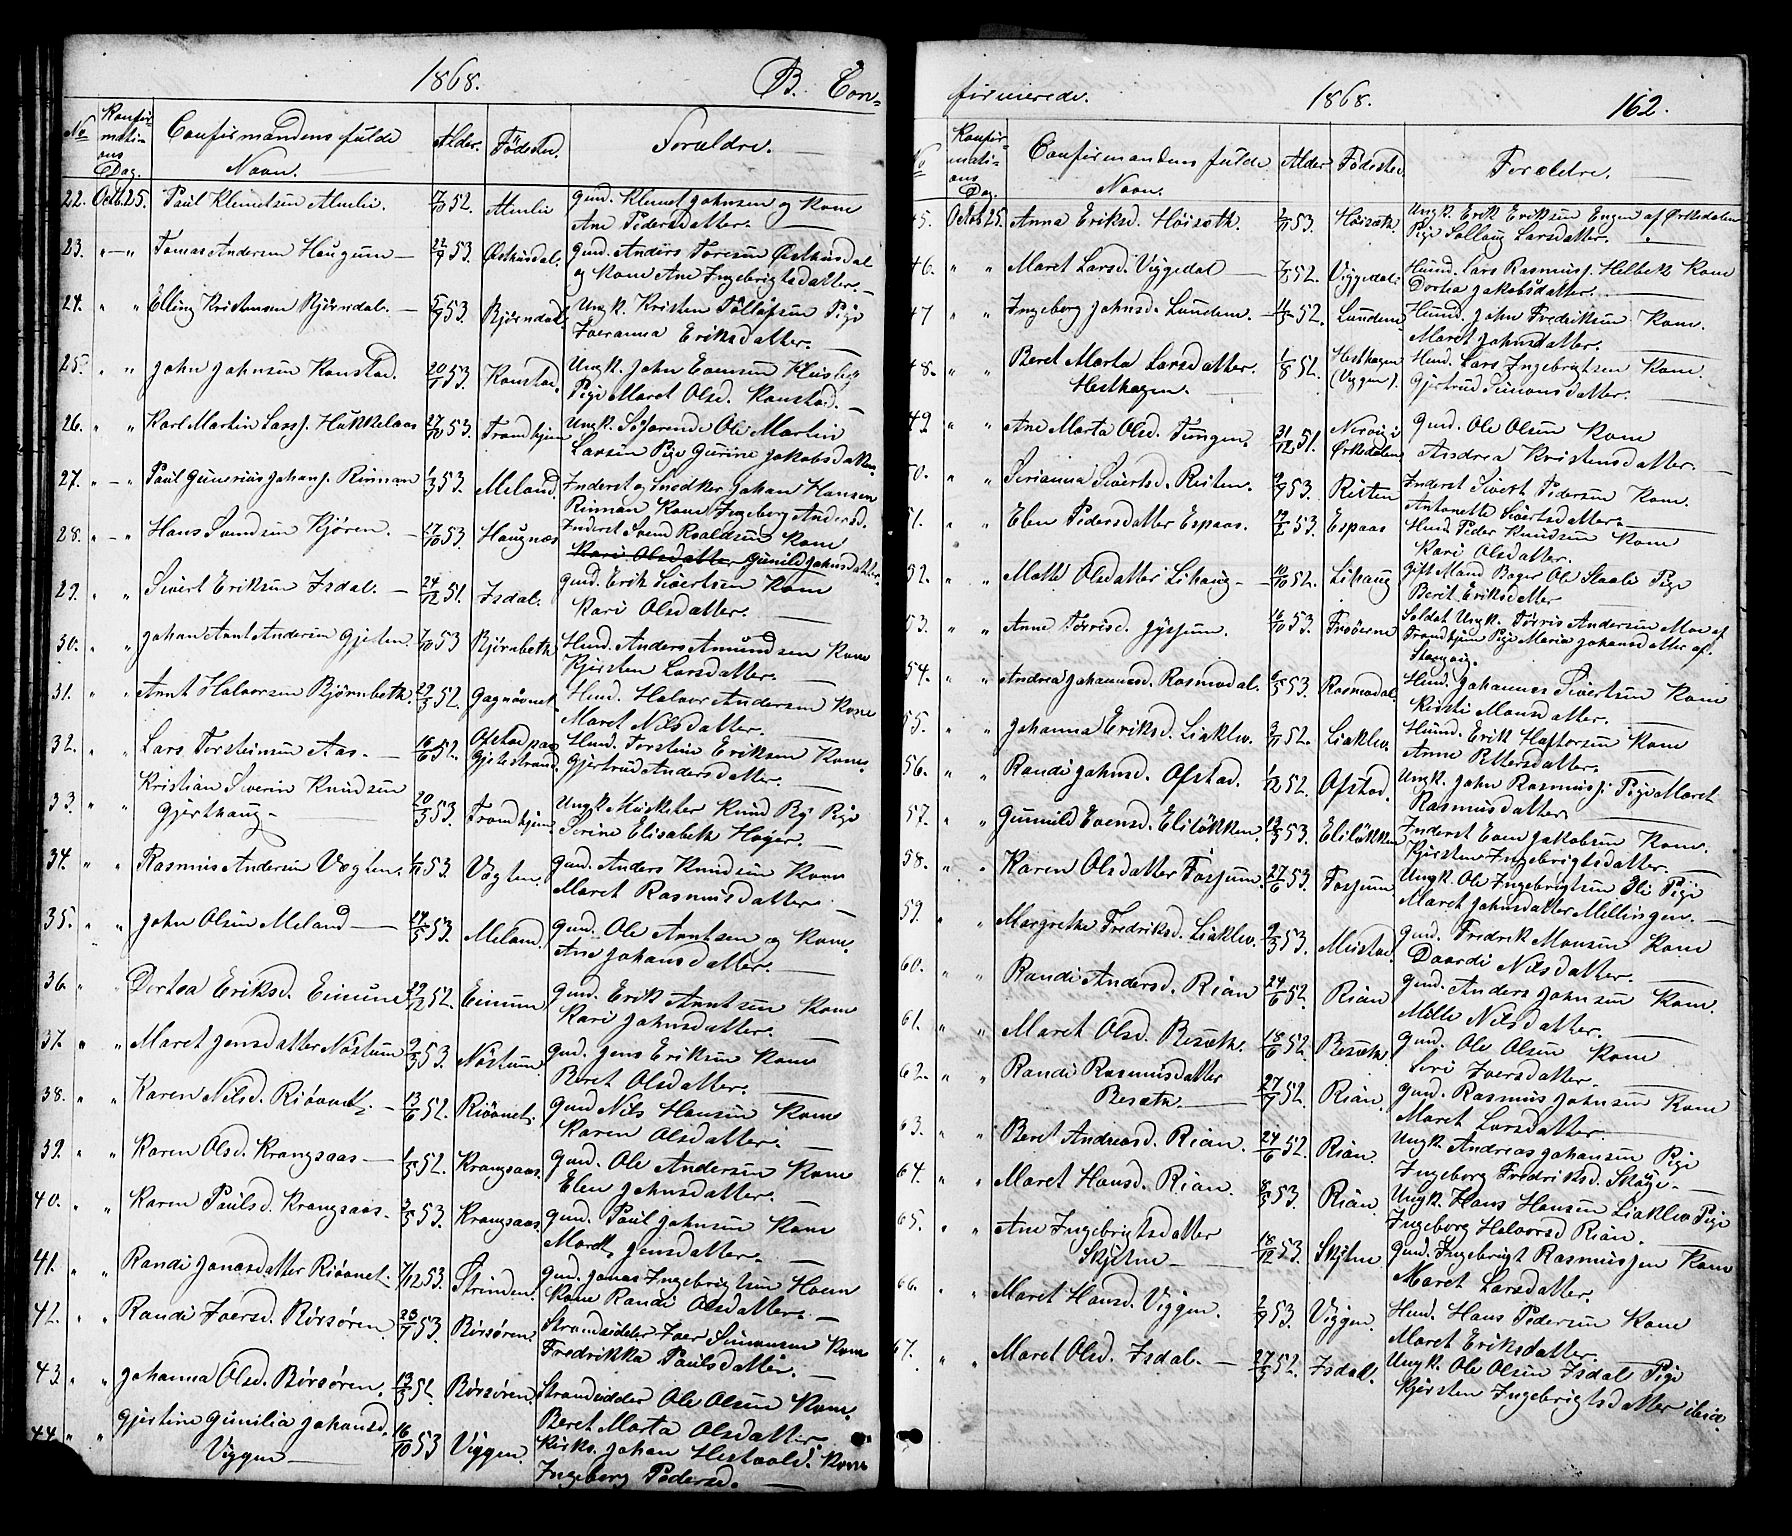 1868. B. Con-
No Konfir- mati- ons Dag. Confirmandens fulde Navn. Alder. Födested. Forældre.
22. Octb. 25. Paul Klemetsen Almlie. 52. Almlie Gmd. Klemet Johnsen og Kone
Ane Pedersdatter.
23. Tomas Andersen Haugum 22/9 53. Østhusdal. Gmd. Anders Toresen Østhusdal
og Kone Ane Ingebrigtsdatter.
24. Elling Kristensen Bjørndal. 53. Bjørndal. Ungk. Kristen Tollefsen Pige
Iveranna Eriksdatter.
25. John Johnsen Konstad. 20/1 53. Konstad. Ungk. John Evensen Huseby
Pige Maret Olsd. Konstad.
26. Karl Martin Larss. Hukkelaas 27/10 53. Trondhjem Ungk. Söfarende Ole Martin
Larsen Pige Gurine Jakobsdatter.
27. Paul Gunerius Johans. Rinnan 1/3 53. Meland. Inderst og Snedker Johan Hansen
Rinnan Kone Ingeborg Andersd.
28. Hans Svendsen Kjören. 17/10 53. Haugnæs Inderst Svend Roaldsen Kone
Kari Olsdatter Gunild Johnsdatter
29. Sivert Eriksen Isdal. 24/12 51. Isdal. Gmd. Erik Sivertsen Kone
Kari Olsdatter.
30. Johan Arnt Andersen Gjesten. 7/10 53 Bjørnbeth Husd. Anders Amundsen Kone
Kjersten Larsdatter.
31. Arnt Halvorsen Bjørnbeth. 52. Gagnåvnet Husd. Halvor Andersen Kone
Maret Nilsdatter.
32. Lars Torsteinsen Aas. 16/6 52. Ofstad paa Gjeilstrand. Husd. Torstein Eriksen Kone.
Gjertrud Andersdatter.
33. Kristian Severin Knudsen
Gjerthaug 20/3 53. Trondhjem Ungk. Musketer Knud By Pige
Serine Elisabeth Høyer.
34. Rasmus Andersen Vægten. 53. Vögten. Gmd. Anders Knudsen Kone
Maret Rasmusdatter.
35. John Olsen Meland 24/5 53. Meland. Gmd. Ole Arntsen og Kone.
Ane Johansdatter.
36. Dortea Eriksd. Eimune 29/12 52. Eimune Gmd. Erik Arntsen Kone
Kari Johnsdatter.
37. Maret Jensdatter Nöstum 9/3 53. Nöstum. Gmd. Jens Eriksen Kone
Beret Olsdatter.
38. Karen Nilsd. Riåvnet. 13/6 52. Riåvnet. Gmd Nils Hansen Kone
Karen Olsdatter.
39. Karen Olsd. Krangsaas 1/5 52. Krangsaas. Gmd. Ole Andersen Kone
Elen Johnsdatter.
40. Karen Paulsd. Krangsaas. 3/5 53. Krangsaas. Gmd. Paul Johnsen Kone
Maret Jensdatter.
41. Randi Jonasdatter Riåvnet. 7/12 53. Strinden. Gmd. Jonas Ingebrigtsen Hoem
Kone Randi Olsdatter.
42. Randi Iversd. Börsören. 53. Börsören. Strandsidder Iver Simonsen Kone
Fredrikka Paulsdatter.
43. Johanna Olsd. Börsören. 13/5 52. Börsören. Strandsidder Ole Olsen Kone.
Beret Marta Olsdatter.
44. Gjertine Gunilia Johansd.
Viggen 16/10 53 Viggen. Kirks. Johan Hestvold. Kone
Ingeborg Pedersd.
firmerede. 1868. 162.
No Konfir- mati- ons Dag. Confirmandens fulde Navn. Alder Födested Forældre.
45. Octob. 25. Anna Eriksd. Höisæth. 53. Höisæth. Ungk. Erik Eriksen Engen af Ørkedalen
Pige Sollaug Larsdatter.
46. Maret Larsd. Viggedal 52. Viggedal. Husmd. Lars Rasmuss. Helbek Kone
Dortea Jakobsdatter.
47 Ingeborg Johnsd. Lundem. 52. Lundem. Husmd. John Fredriksen Kone.
Maret Johnsdatter.
48. Beret Marta Larsdatter.
Hesthagen. 1/8 52. Hesthagen (Viggen). Husd. Lars Ingebrigtsen Kone.
Gjertrud Simonsdatter.
49 Ane Marta Olsd. Tungen. 31/12 51. Nervig i Ørkedalen Gmd. Ole Olsen Kone
Andrea Kristensdatter.
50. Serianna Sivertsd. Risten. 53. Risten Inderst Sivert Pedersen Kone.
Antonette Sivertsdatter.
51. Elen Pedersdatter Espaas. 53. Espaas Husd. Peder Knudsen Kone
Kari Olsdatter.
52. Mette Olsdatter Lihaug 10/10 52. Lihaug Gift Mand Bager Ole Staale Pige
Berit Eriksdatter
53. Ane Törrisd. Jyssum. 16/10 53. Soldat Ungk. Törris Andersen Moe af
Trondhjem Pige Maria Johansdatter af
Stangvig.
54. Andrea Johannesd. Rosmodal. 53. Rosmodal. Husd. Johannes Sivertsen Kone
Kirsti Monsdatter.
55. Johanna Eriksd. Liaklev. 52. Liaklev. Husmd. Erik Haftorsen Kone
Anne Pettersdatter.
56. Randi Johnsd. Ofstad. 1/12 52. Ofstad. Ungk. John Rasmuss. Pige Maret
Rasmusdatter
57. Gunnild Evensd. Elilökken. 53. Elilökken Inderst Even Jakobsen Kone.
Kjersten Ingebrigtsdatter.
58. Karen Olsdatter Fossum. 27/6 53. Fossum. Ungk. Ole Ingebrigtsen Eli Pige
Maret Johnsdatter Mellingen.
59. Margrethe Fredriksd. Liaklev. 9/3 53. Mustad. Gmd. Fredrik Monsen Kone
Daardi Nilsdatter.
60. Randi Andersd. Rian 24/6 52. Rian Gmd. Anders Johnsen Kone.
Mille Nilsdatter.
61. Maret Olsd. Besæth. 18/6 52. Besæth. Gmd. Ole Olsen Kone
Siri Iversdatter.
62. Randi Rasmusdatter
Besæth. 52. Rian. Gmd. Rasmus Johnsen Kone
Maret Larsdatter.
63. Beret Andreasd. Rian. 24/6 52. Rian. Ungk. Andreas Johansen Pige
Ingeborg Fredriksd. Skage.
64. Maret Hansd. Rian. 8/5 53. Rian. Ungk. Hans Hansen Liaklev Pige
Ingeborg Halvorsd Rian.
65. Ane Ingebrigtsdatter
Skjetne 18/12 53. Skjetne Gmd. Ingebrigt Rasmussen Kone
Maret Larsdatter.
66. Maret Hansd. Viggen. 2/9 53. Viggen. Husd. Hans Pedersen Kone
Maret Eriksdatter.
67. Maret Olsd. Isdal. 27/5 52. Isdal. Ungk. Ole Olsen Isdal Pige
Kjersten Ingebrigtsdatter ibid.